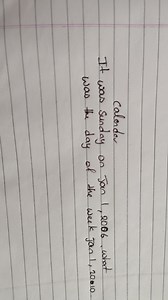 Calendar
It was Sunday on Jan 1, 2006. what
was the day of the week Jan 1, 2010.